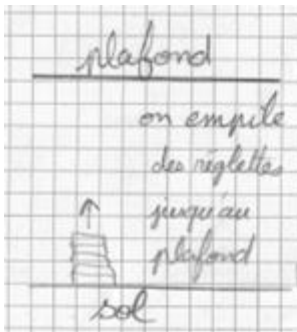 plafond
on empile
des réglettes
jusqu'au
plafond
sol